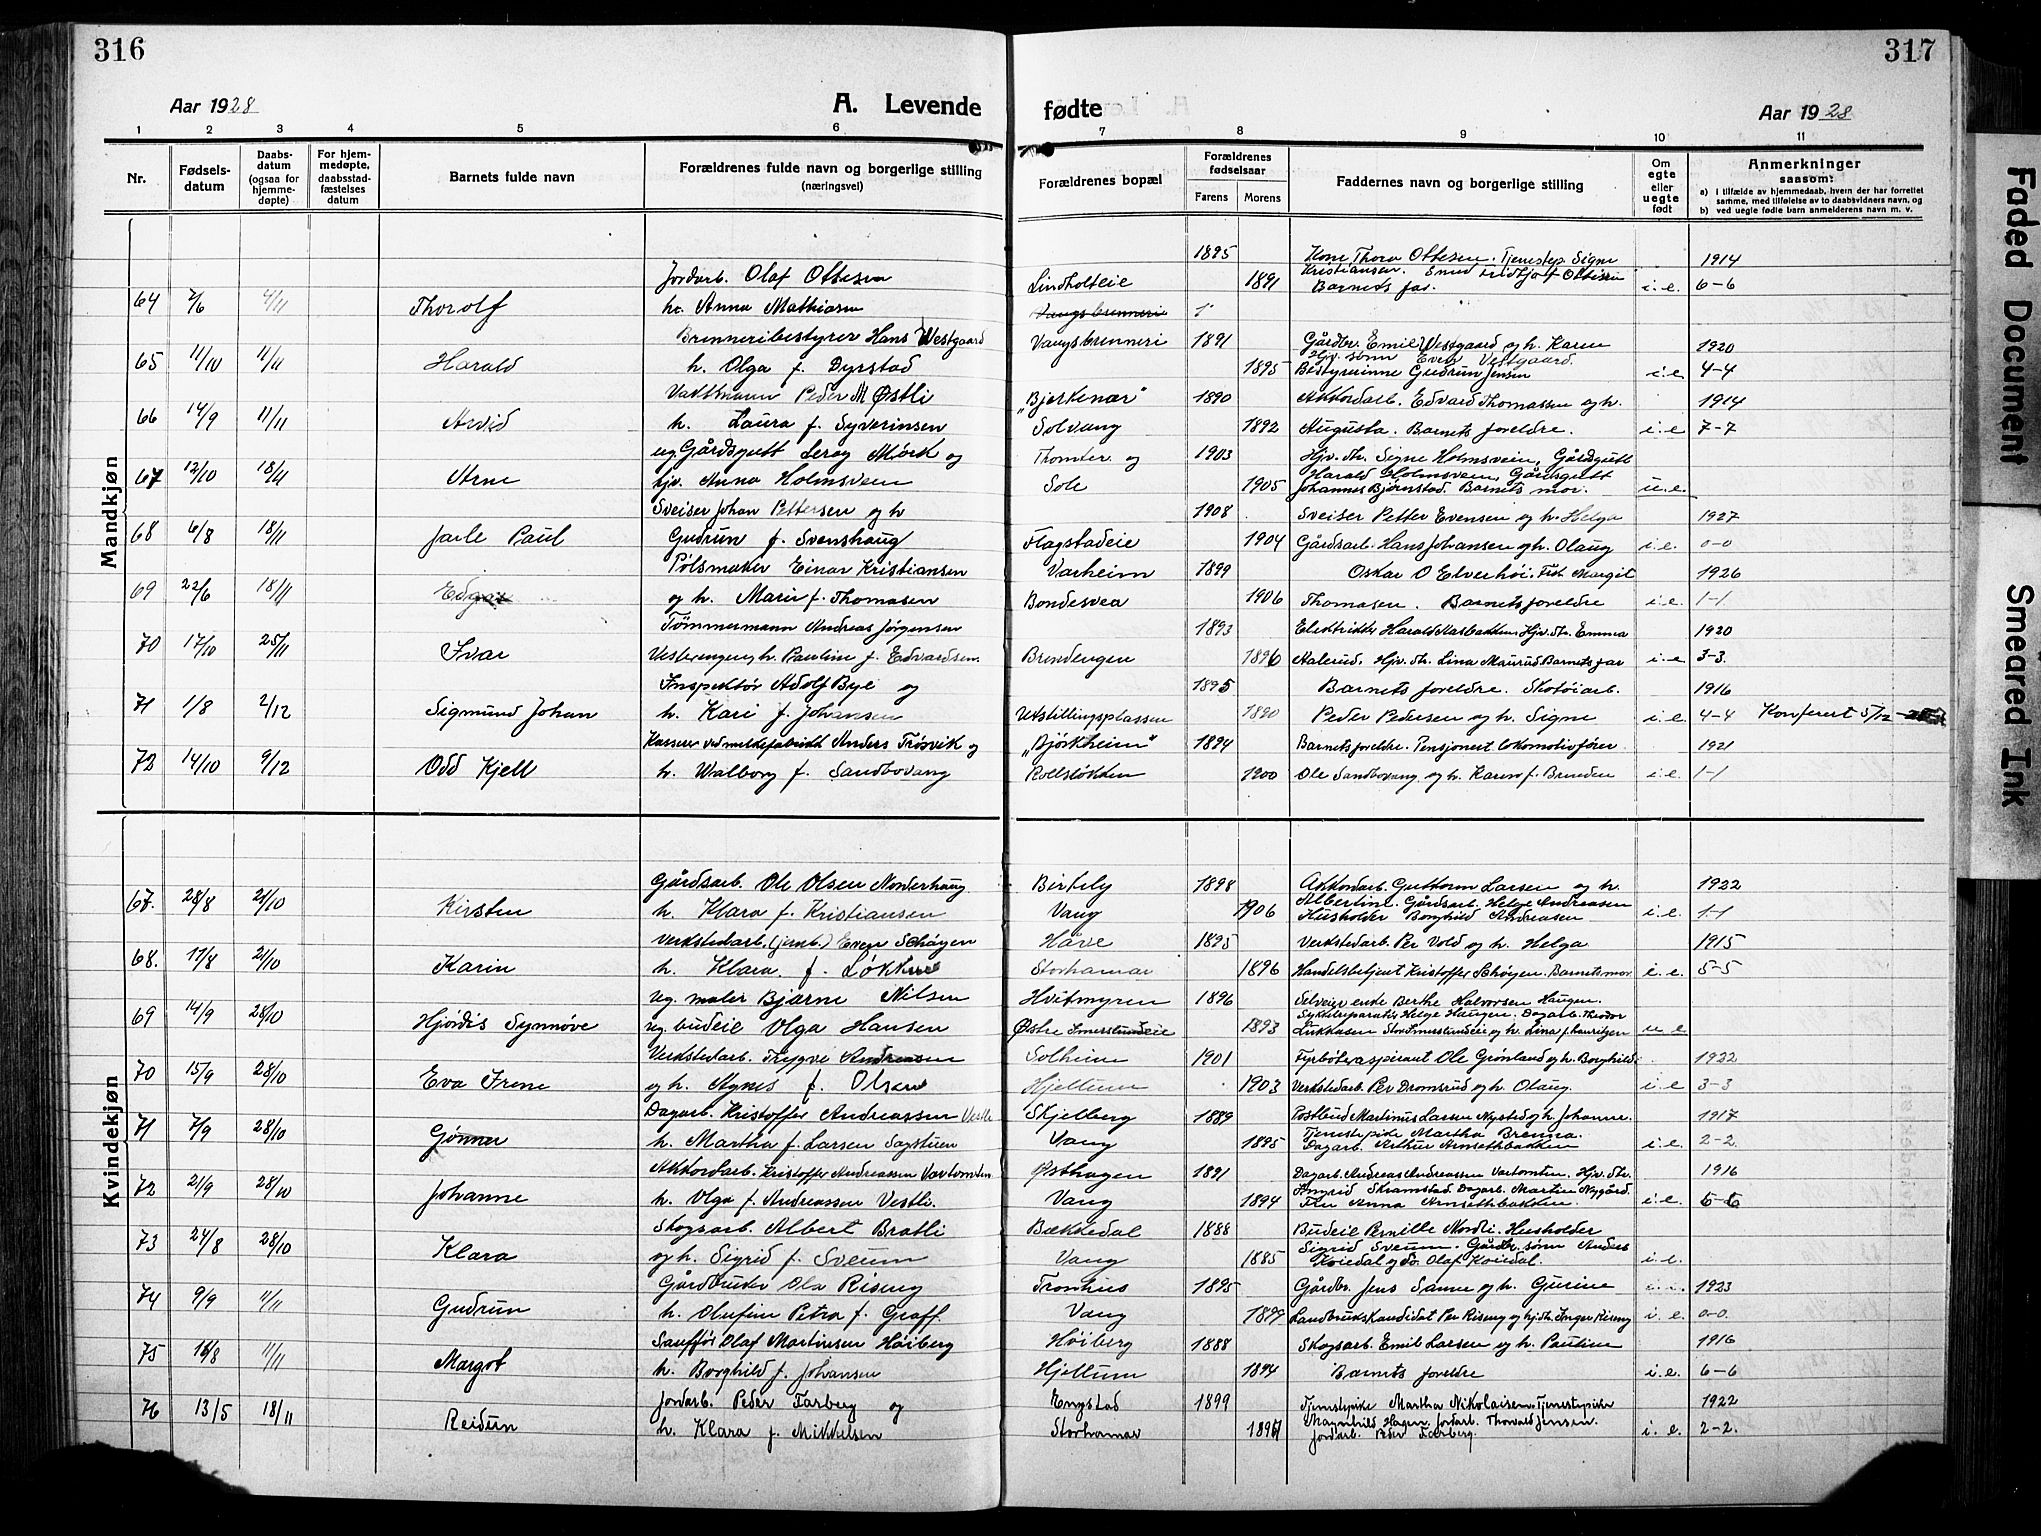 316
317
Aar 1928
A. Levende
fødte
Aar 1928
1 2 3 4 5 6 7 8 9 10 11
Nr.
Fødsels-
datum
Daabs-
datum
(ogsaa for
hjemme-
døpte)
For hjem-
medøpte,
daabsstad-
fæstelses
datum
Barnets fulde navn
Forældrenes fulde navn og borgerlige stilling
(næringsvei)
Forældrenes bopæl
Forældrenes
fødselsaar
Farens Morens
Faddernes navn og borgerlige stilling
Om
egte
eller
uegte
født
Anmerkninger
saasom:
a) i tilfælde av hjemmedaab, hvem der har forrettet
samme, med tilføielse av to daabsvidners navn, og
b) ved uegte fødte barn anmelderens navn m. v.
Mandkjøn
Jordarb. Olaf Ottesen 1895 Kone Thora Ottesen. Tjenestep. Signe 1914
64 2/6 4/11 Thorolf h. Anna Mathiasen Lindholteie 1891 Kristiansen. Barnets far. i.e. 6-6
Vangsbrenneri
Brenneribestyrer Hans Westgaard Vangsbrenneri 1891 Gårdbr. Emil Westgaard og h. Karen 1920
65 11/10 11/11 Harald h. Olga f. Dyrstad 1895 Hjv. sønn Even Vestgaard. Bestyrerinne Gudrun Jensen i.e 4-4
Vaktmann Peder M Østli "Bjerkenær" 1890 Akkordarb. Edvard Thomassen og h. 1914
66 14/9 11/11 Arvid h. Laura f. Syverinsen Solvang 1892 Augusta. Barnets foreldre. i.e 7-7
ug. Gårdsgutt Leroy Mørk og Thomter og 1903 Hjv. dtr. Signe Holmsveen, Gårdsgutt
67 12/10 18/11 Arne hjv. Anna Holmsveen Sole 1905 Harald Holmsveen, Gårdsgutt Johannes Bjørnstad. Barnets mor. u.e.
Sveiser Johan Pettersen og h 1908 Sveiser Petter Evensen og h. Helga 1927
68 6/8 18/11 Jarle Paul Gudrun f. Svenshaug Flagstadeie 1904 Gårdsarb. Hans Johansen og h. Olaug i.e. 0-0
Pølsmaker Einar Kristiansen Varheim 1899 Oskar O Elverhøi. Frk. Margit 1926
69 22/6 18/11 Edgar og h. Marie f. Thomasen Bondesvea 1906 Thomasen. Barnets foreldre i.e. 1-1
Tømmermann Andreas Jørgensen 1893 Elektriker Harald Kasbakken. Hjv. dtr. Emma 1920
70 17/10 25/11 Ivar Vesterengen og h. Pauline f. Edvardsen. Brendengen 1896 Aalerud. Hjv. dtr. Lina Maurud. Barnets far i.e 3-3.
Inspektør Adolf Bye og 1895 Barnets foreldre. Skotøiarb. 1916
71 1/8 2/12 Sigmund Johan h. Kari f. Johansen Utstillingsplassen 1890 Peder Pedersen og h. Signe i.e. 4-4 Konferert 5/12
Kasserer ved melkefabrikk Anders Trøsvik og "Bjørkheim" 1894 Barnets foreldre. Pensjonert lokomotivfører 1921
72 14/10 9/12 Odd Kjell h. Walborg f. Sandbovang Rollsløkken 1900 Ole Sandbovang og h. Karen f. Brenden i.e. 1-1
Kvindekjøn
Gårdsarb. Ole Olsen Norderhaug. Birkely 1898 Akkordarb. Guttorm Larsen og h. 1922
67. 28/8 21/10 Kirsten h. Klara f. Kristiansen Vang 1906 Albertine. Gårdsarb. Helge Andreasen Husholder Borghild Andreasen i.e. 1-1
Verkstedarb. (jernb.) Even Schøyen Håve 1895 Verkstedarb. Per Vold og h. Helga 1915
68. 17/8 21/10 Karin h. Klara f. Løkken Storhamar 1896 Handelsbetjent Kristoffer Schøyen. Barnets mor i.e. 5-5
ug. maler Bjarne Nilsen Hvitmyren 1896 Selveierenke Berthe Halvorsen Haugen.
69 14/9 28/10 Hjørdis Synnøve ug. budeie Olga Hansen Østre Imerslundeie 1893 Sykkelreparatør Helge Haugen. Dagarb. Theodor Lukkasen Storimerslundeie og h. Lina f. Lauritzen u.e
Verkstedarb. Trygve Andreasen Solheim 1901 Fyrbøteraspirant Ole Grønland og h. Borghild. 1922
70 15/9 28/10 Eva Irene og h. Agnes f. Olsen Hjellum 1903 Verkstedarb. Per Dromsrud og h. Olaug. i.e 3-3
Dagarb. Kristoffer Andreassen Vestli Skjelberg 1889 Postbud Martinus Larsen Nysted og h. Johanne. 1917
71 7/9 28/10 Gønner h. Martha f. Larsen Sagstuen Vang 1895 Tjenestepike Martha Brenna. Dagarb. Arthur Arnsethbakken i.e. 2-2.
Akkordarb. Kristoffer Andreassen Vartomten Østhagen 1891 Dagarb. Andreas Andreassen Vartomten. Hjv. dtr. 1916
72 21/9 28/10 Johanne h. Olga f. Andreassen Vestli. Vang 1894 Ingrid Skramstad. Dagarb. Martin Nygård. Fru Anna Arnsethbakken. i.e. 6-6
Skogsarb. Albert Bratli Bækkedal 1888 Budeie Pernille Nordli. Husholder
73 24/8 28/10 Klara og h. Sigrid f. Sveum Vang 1885 Sigrid Sveum. Gårdbr. sønn Anders Kvisdal og do. Olaf Kvisdal. i.e.
Gårdbruker Ole Riseng Tronhus 1895 Gårdbr. Jens Sanne og h. Gurine 1923
74 9/9 11/11 Gudrun h. Olufine Petra f. Graff. Vang 1899 Landbrukskandidat Per Riseng og hj.dtr. Inger Riseng i.e. 0-0.
Sauffør Olaf Martinsen Høiberg Høiberg 1888 Skogsarb. Emil Larsen og h. Pauline 1916
75 16/8 11/11 Margot h. Borghild f. Johansen Hjellum 1894 Barnets foreldre i.e. 6-6
Jordarb. Peder Farberg og Engstad 1899 Tjenstepike Martha Nikolaisen. Tjenstepike 1922
76 13/5 18/11 Reidun h. Klara f. Mikkelsen Storhamar 1896 Magnhild Hagen. Jordarb. Thorvald Jensen. Jordarb. Peder Farberg. i.e. 2-2.
Faded Document
Smeared Ink